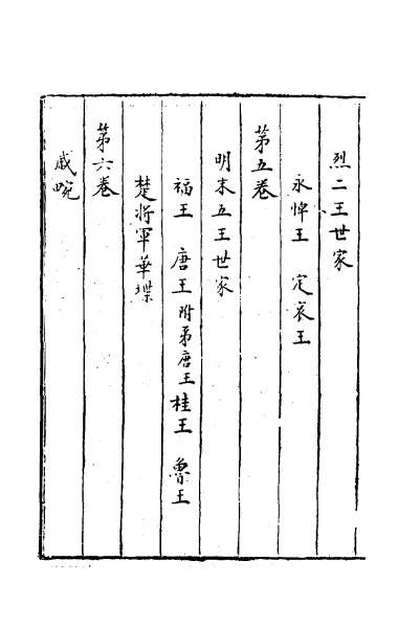 烈二王世家
永悼王　定哀王
第五卷
明末五王世家
福王　唐王附弟唐王　桂王　魯王
楚將軍華堞
第六卷
戚畹